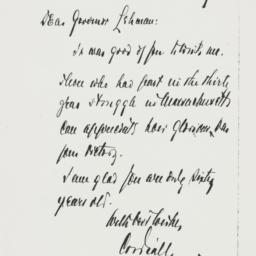 Dear Governor Lehman:
It was good of you to write me.
Those who had part in the thirty
year struggle in Massachusetts
can appreciate how glorious was
your victory.
I am glad you are only sixty
years old.
With best wishes,
Cordially